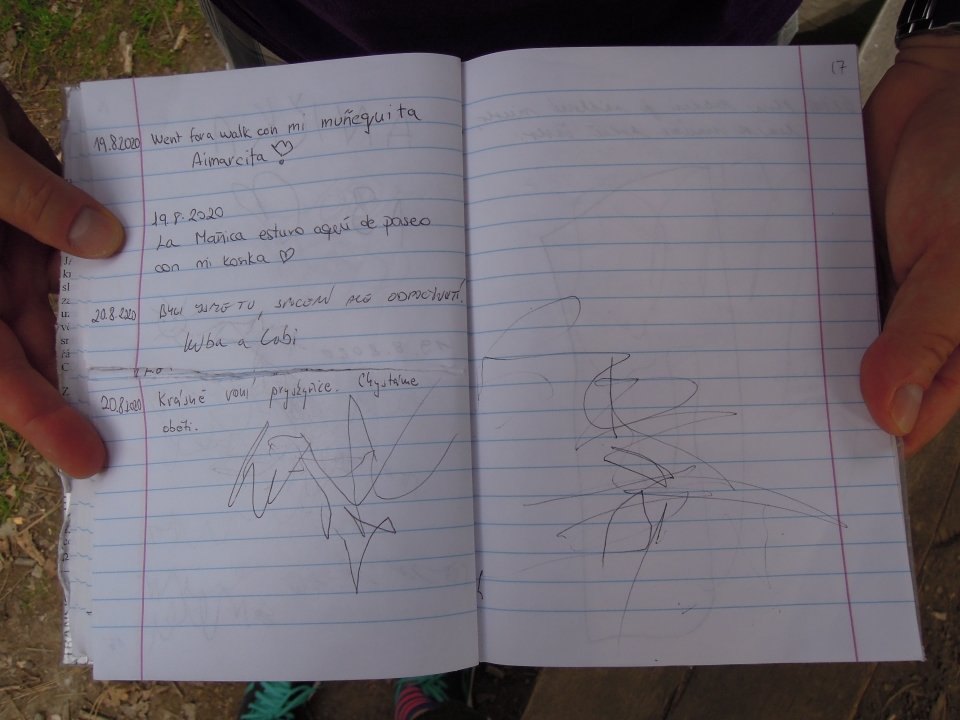 19.8.2020 Went for a walk con mi muñequita
Aimarcita
19.8.2020
La Mañica estuvo aquí de paseo
con mi konka
20.8.2020 BYLI JSME TU, SMĚR ODPOČINUTÍ!
Kuba a Gabi
20.8.2020 Krásně voní pryskyřice. Chystáme
oběti.
17